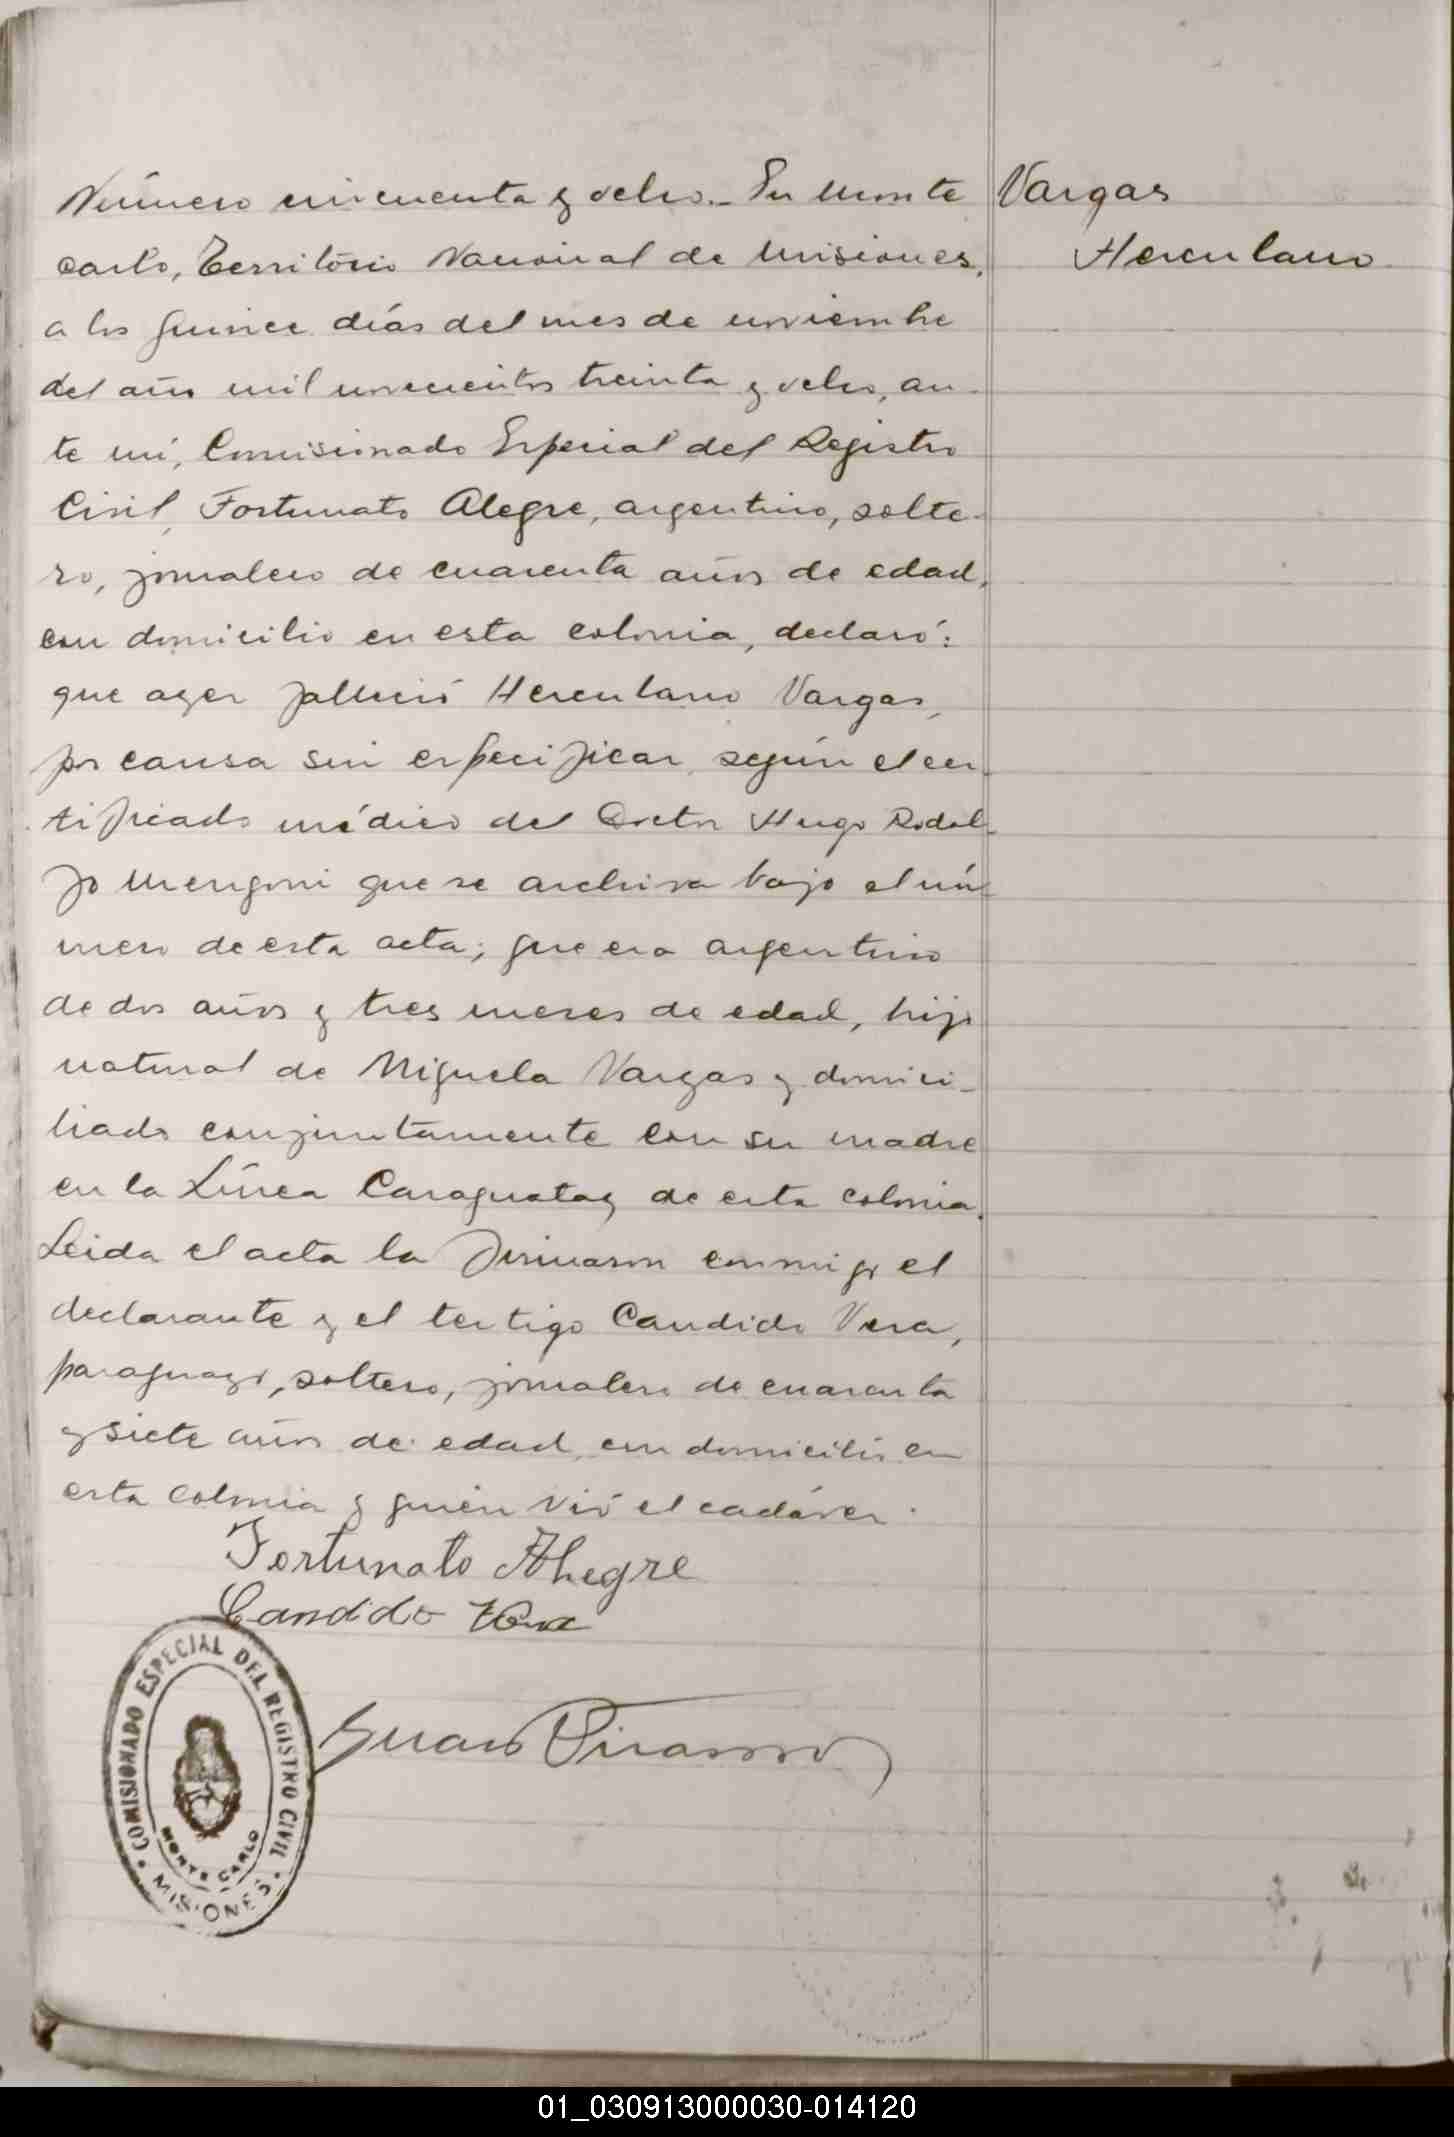 Número cincuenta y ocho.- En Monte
Vargas
Herculano
carlo, Territorio Nacional de Misiones,
a los quince días del mes de noviembre
del año mil novecientos treinta y ocho, an-
te mí, Comisionado Especial del Registro
Civil, Fortunato Alegre, argentino, solte-
ro, jornalero de cuarenta años de edad,
con domicilio en esta colonia, declaró:
que ayer falleció Herculano Vargas,
por causa sin especificar, según el cer-
tificado médico del Doctor Hugo Rodol-
fo Mengoni que se archiva bajo el nú-
mero de esta acta; que era argentino
de dos años y tres meses de edad, hijo
natural de Miguela Vargas y domici-
liado conjuntamente con su madre
en la Línea Caraguatay de esta colonia.
Leida el acta la firmaron conmigo el
declarante y el testigo Candido Vera,
paraguayo, soltero, jornalero de cuarenta
y siete años de edad, con domicilio en
esta colonia y quien vió el cadáver.
Fortunato Alegre
Candido Vera
Juan
COMISIONADO ESPECIAL DEL REGISTRO CIVIL
MONTE CARLO
MISIONES
01_030913000030-014120